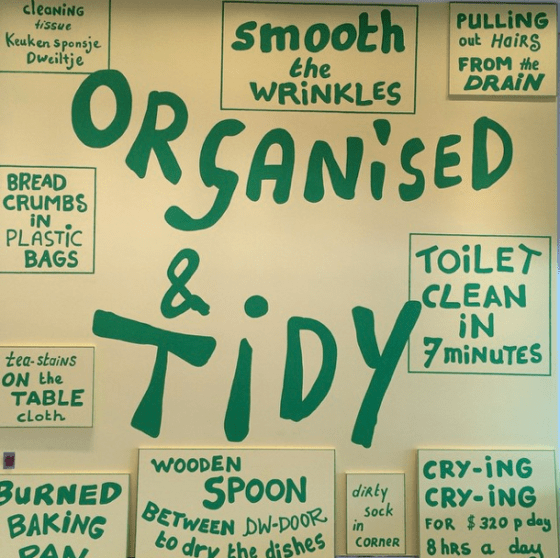 cleaning
tissue
Keuken sponsje
Dweiltje
smooth
the
WRiNKLES
PULLiNG
out HAiRS
FROM the
DRAiN
ORGANiSED
&
TiDY
BREAD
CRUMBS
iN
PLASTiC
BAGS
TOiLET
CLEAN
iN
7 miNUTES
tea-stains
ON the
TABLE
cloth
BURNED
BAKiNG
PAN
WOODEN
SPOON
BETWEEN DW-DOOR
to dry the dishes
dirty
sock
in
CORNER
CRY-iNG
CRY-iNG
FOR $320 p day
8 hrs a day